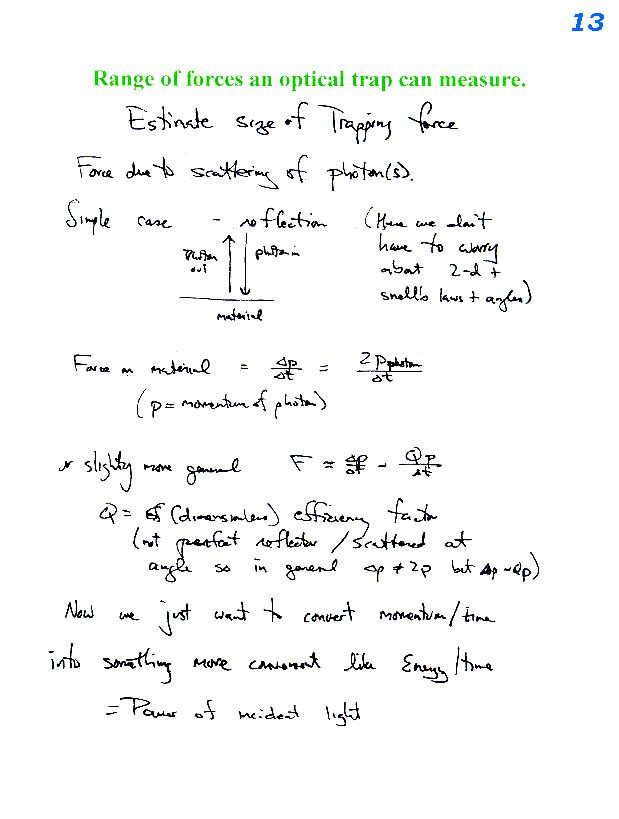 13
Range of forces an optical trap can measure.
Estimate size of Trapping force
Force due to scattering of photon(s).
Simple case - reflection (Here we don't
have to worry
about 2-d +
snell's laws + angles)
photon out
photon in
material
Force on material = Δp/Δt = 2 Pphoton/Δt
(p = momentum of photon)
or slightly more general F = Δp/Δt - Qp/Δt
Q = (dimensionless) efficiency factor
(not perfect reflector / scattered at
angle so in general Δp ≠ 2p but Δp ~ Qp)
Now we just want to convert momentum/time
into something more convenient like Energy/time
= Power of incident light